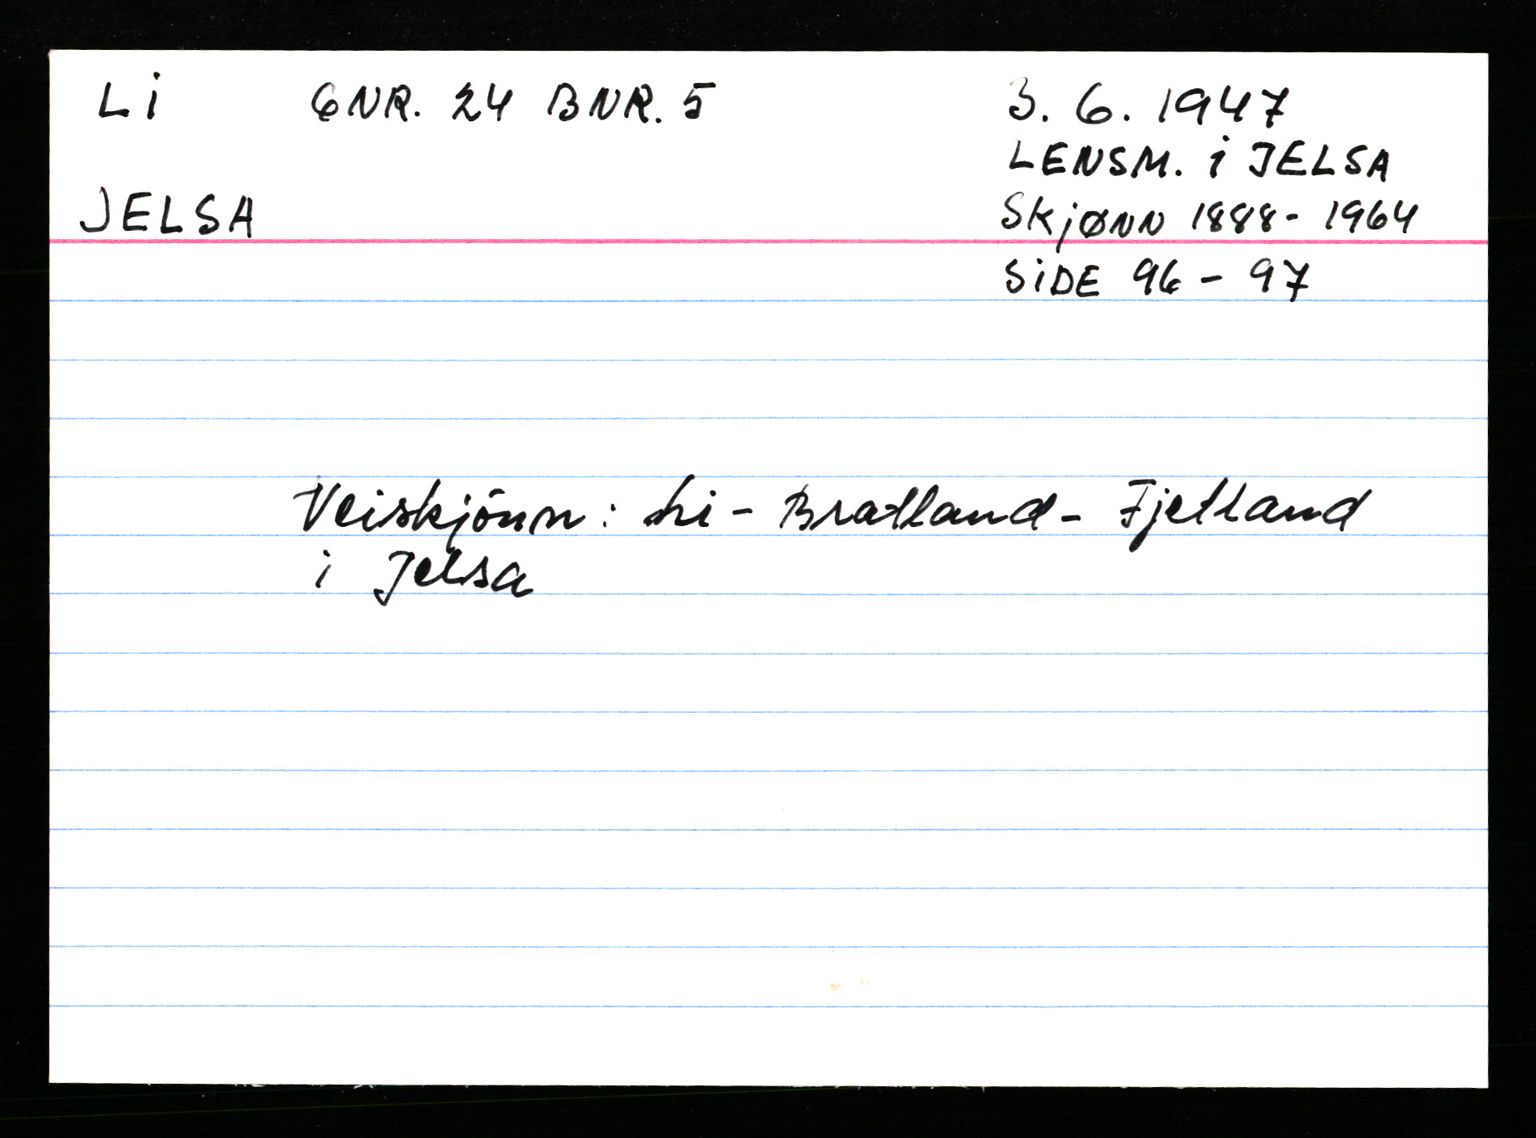 Li GNR. 24 BNR. 5 3. 6. 1947
LENSM. i JELSA
JELSA SkjØNN 1888 - 1964
SiDE 96 - 97
Veiskjönn: Li - Bratland - Fjelland
i Jelsa